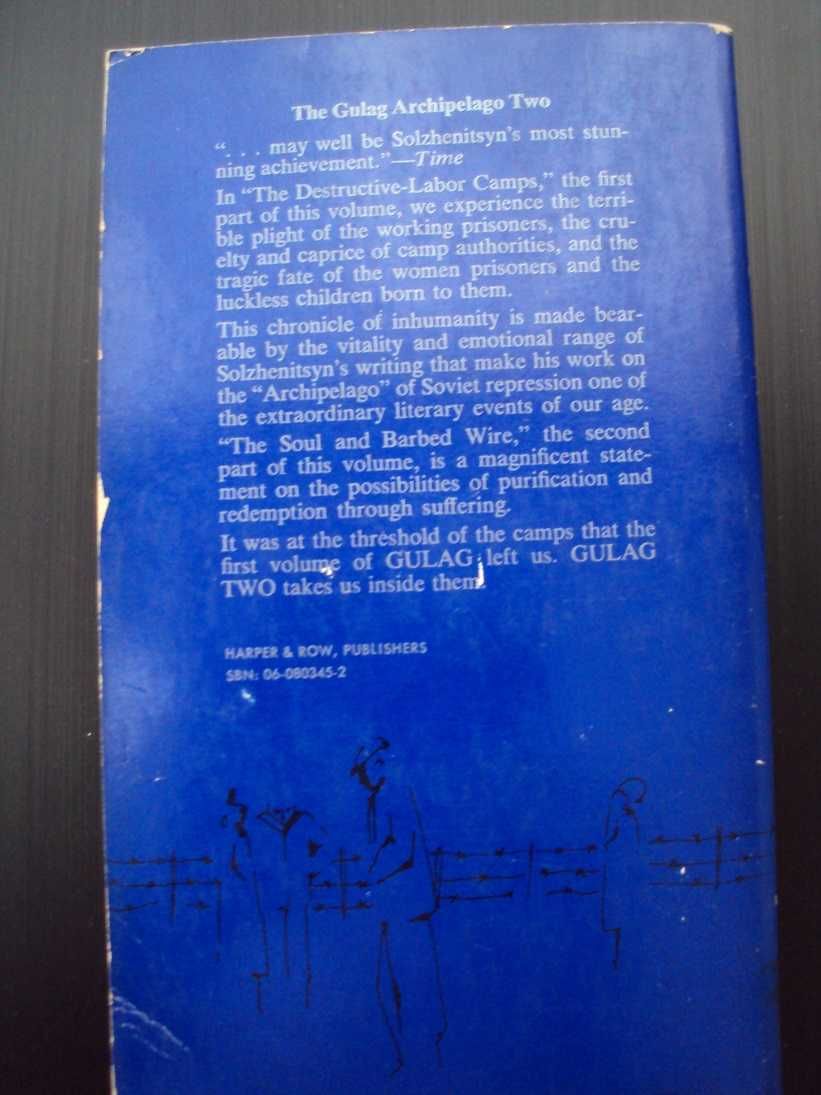 The Gulag Archipelago Two
“. . . may well be Solzhenitsyn’s most stun-
ning achievement.”—Time
In “The Destructive-Labor Camps,” the first
part of this volume, we experience the terri-
ble plight of the working prisoners, the cru-
elty and caprice of camp authorities, and the
tragic fate of the women prisoners and the
luckless children born to them.
This chronicle of inhumanity is made bear-
able by the vitality and emotional range of
Solzhenitsyn’s writing that make his work on
the “Archipelago” of Soviet repression one of
the extraordinary literary events of our age.
“The Soul and Barbed Wire,” the second
part of this volume, is a magnificent state-
ment on the possibilities of purification and
redemption through suffering.
It was at the threshold of the camps that the
first volume of GULAG left us. GULAG
TWO takes us inside them.
HARPER & ROW, PUBLISHERS
SBN: 06-080345-2